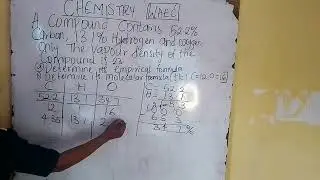 CHEMISTRY WAEC
A Compound Contains 52.2%
Carbon, 13.1% Hydrogen and oxygen
Only. The vapour density of the
Compound is 23
a) Determine its empirical formula
Determine its molecular formula [H=1 C=12 O=16]
C H O
52.2 13.1 34.7
12 16
4.35 13.1
65.3
34.7%